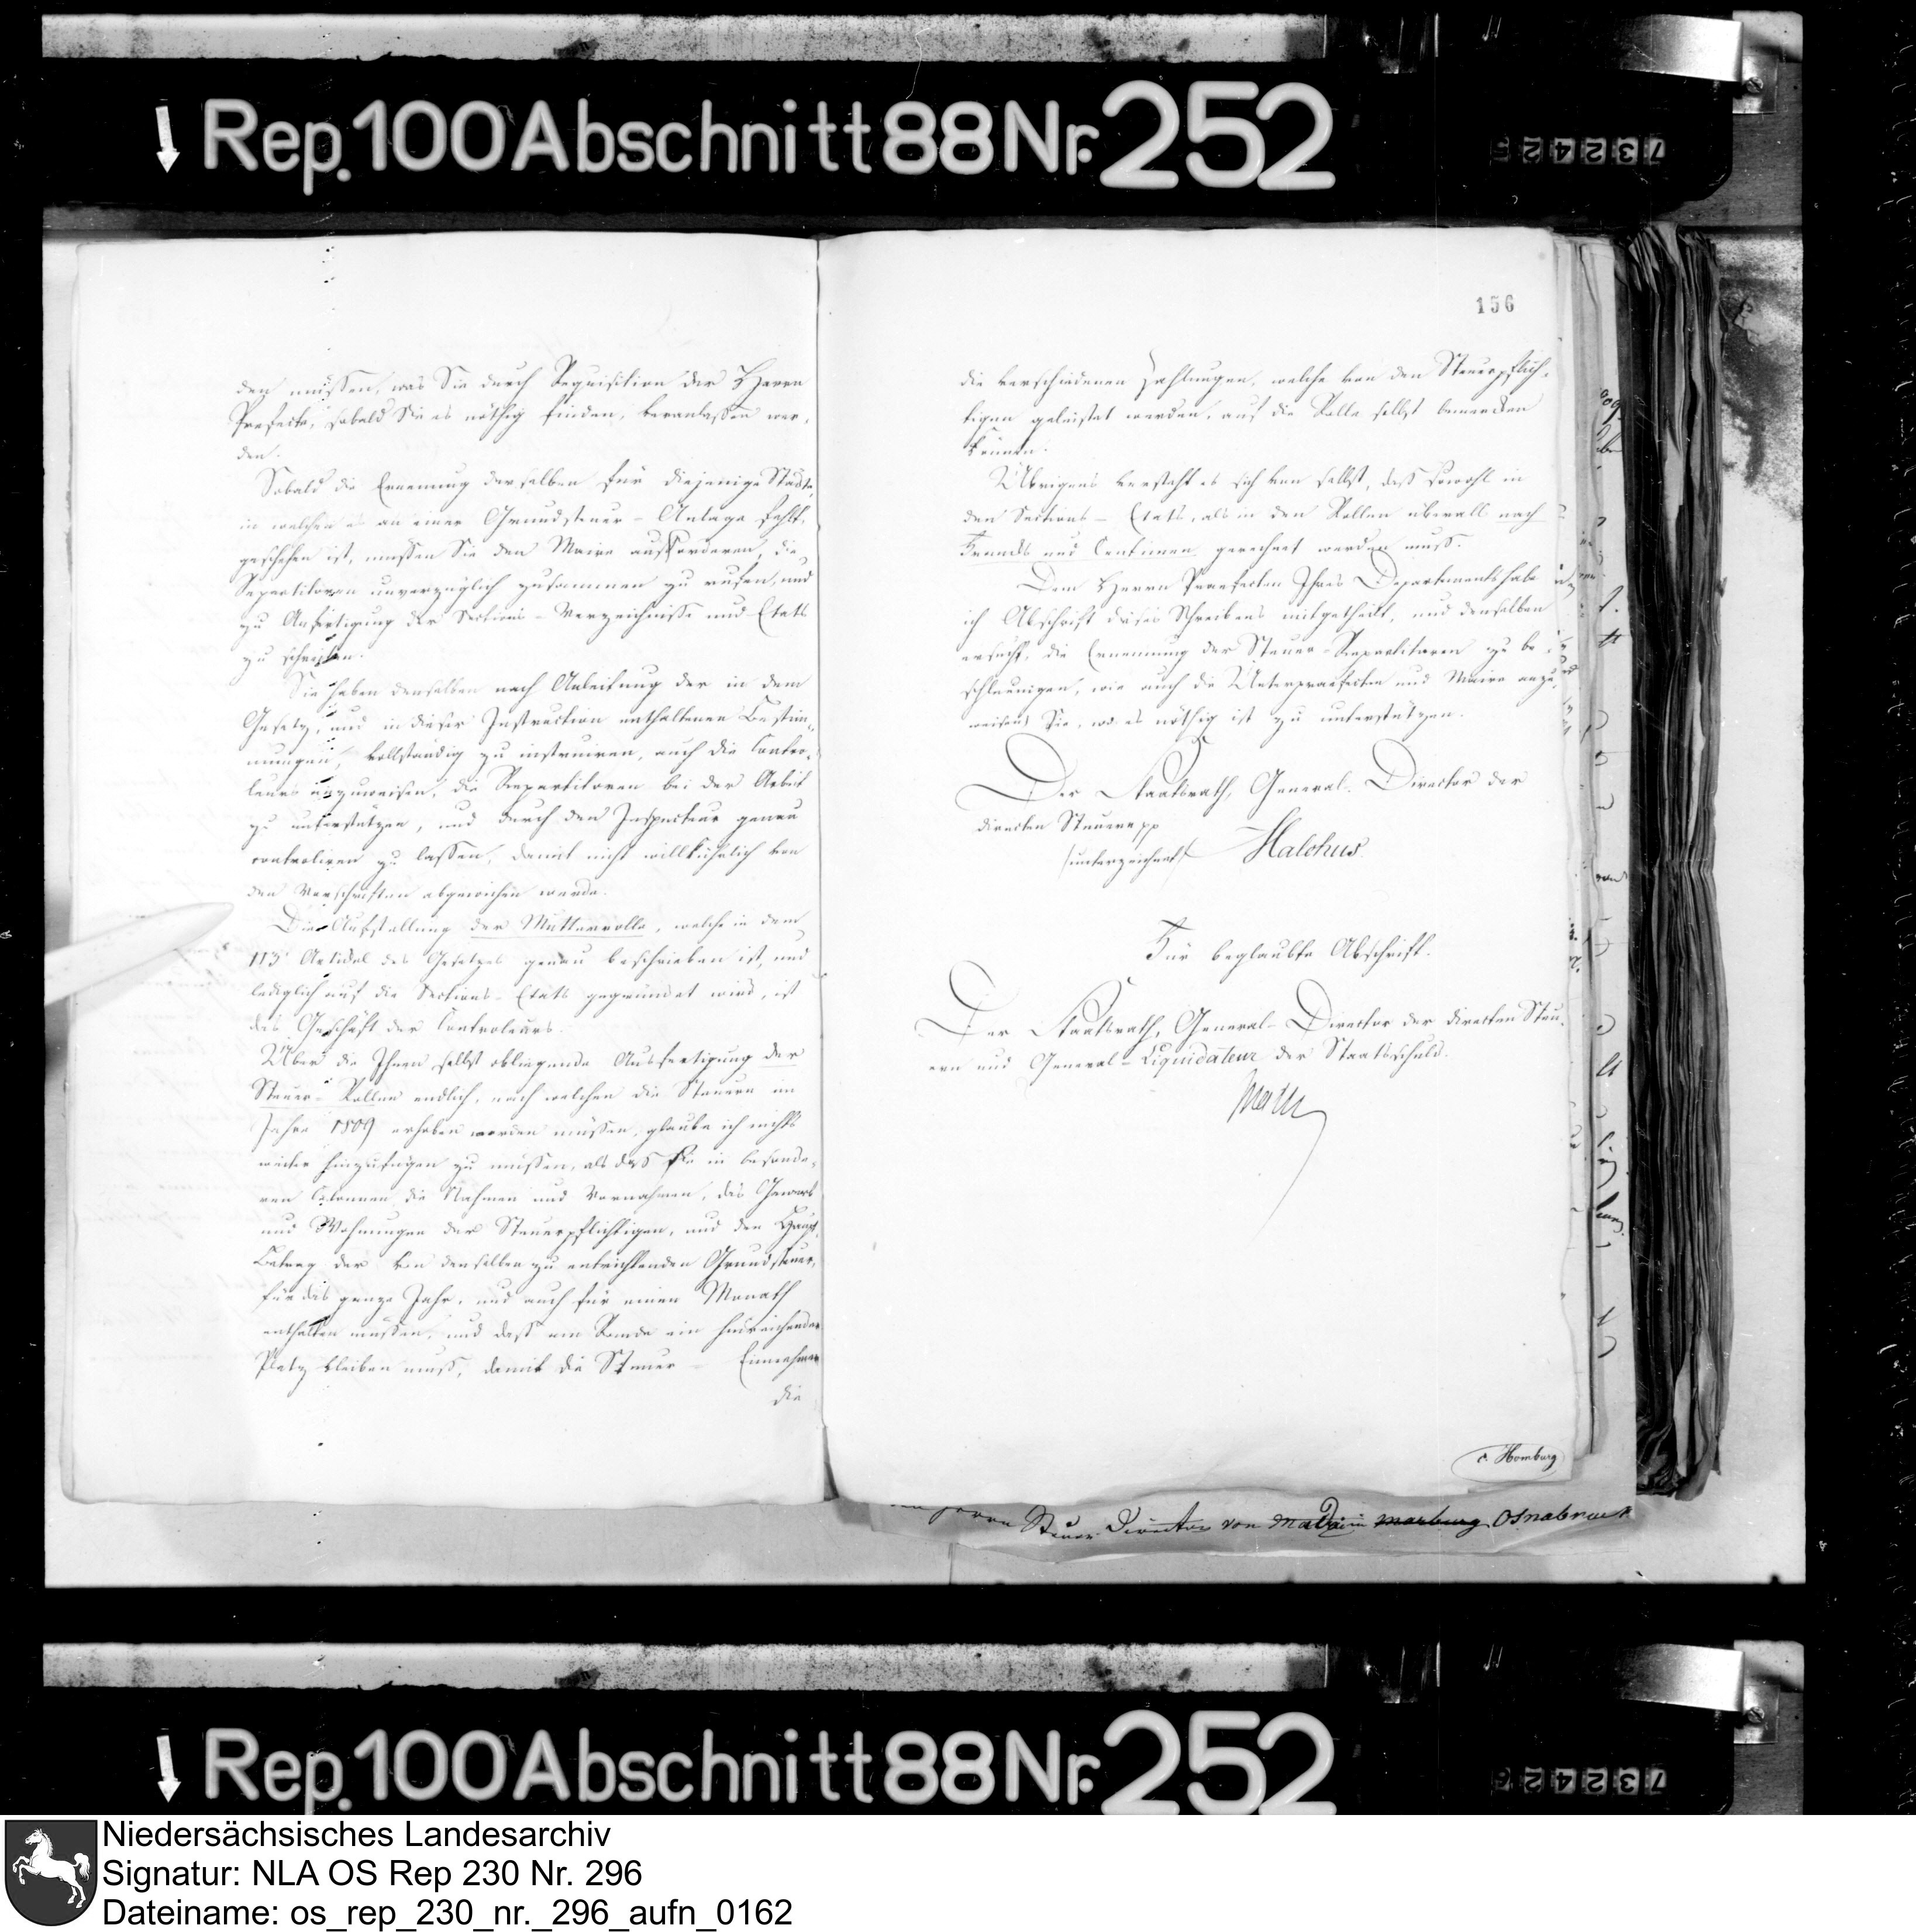 Rep. 100 Abschnitt 88 Nr. 252
732425
den müssen, was Sie durch Requisition der Herrn
Prefecte, sobald Sie es nöthig finden, veranlassen wer-
den.
Sobald die Ernennung derselben für diejenige Städte,
in welchen es an einer Grundsteuer-Anlage fehlt,
geschehen ist, müssen Sie den Maire auffordern, die
Repartitoren unverzüglich zusammen zu rufen, und
zu Anfertigung der Sections-Verzeichnisse und Etats
zu schreiten.
Sie haben denselben nach Anleitung der in dem
Gesetz, und in dieser Instruction enthaltenen Bestim-
mungen, vollständig zu instruiren, auch die Contro-
leurs anzuweisen, die Repartitoren bei der Arbeit
zu unterstützen, und durch den Inspecteur genau
controliren zu lassen, damit nicht willkührlich von
den Vorschriften abgewichen werde.
Die Aufstellung der Mutterrolle, welche in dem
113 Artickel des Gesetzes genau beschrieben ist, und
lediglich auf die Sections-Etats gegründet wird, ist
das Geschäft der Controleurs.
Über die Ihnen selbst obliegende Ausfertigung der
Steuer-Rollen endlich, nach welchen die Steuern im
Jahre 1809 erhoben werden müssen, glaube ich nichts
weiter hinzufügen zu müssen, als daß sie in besonde-
ren Colonnen die Nahmen und Vornahmen, das Gewerb
und Wohnungen der Steuerpflichtigen, und den Haupt-
Betrag der von denselben zu entrichtenden Grundsteuer,
für das ganze Jahr, und auch für einen Monath
enthalten müssen, und daß am Rande ein hinreichender
Platz bleiben muß, damit die Steuer-Einnehmer
die
156
die verschiedenen Zahlungen, welche von den Steuerpflich-
tigen geleistet werden, auf die Rolle selbst bemerken
können.
Übrigens versteht es sich von selbst, daß sowohl in
den Sections-Etats, als in den Rollen überall nach
Francks und Centimen gerechnet werden muß.
Dem Herrn Praefecten Ihres Departements habe
ich Abschrift dieses Schreibens mitgetheilt, und denselben
ersucht, die Ernennung der Steuer-Repartitoren zu be-
schleunigen, wie auch die Unterpraefecten und Maire anzu-
weisen Sie, wo es nöthig ist zu unterstützen.
Der Staatsrath, General-Director der
directen Steuern pp
/unterzeichnet/ Malchus.
Für beglaubte Abschrift.
Der Staatsrath, General-Director der directen Steu-
ern und General-Liquidateur der Staatsschuld.
c. Homburg
Herrn Steuer Director von marburg Osnabrueck
Rep. 100 Abschnitt 88 Nr. 252
Niedersächsisches Landesarchiv
Signatur: NLA OS Rep 230 Nr. 296
Dateiname: os_rep_230_nr._296_aufn_0162